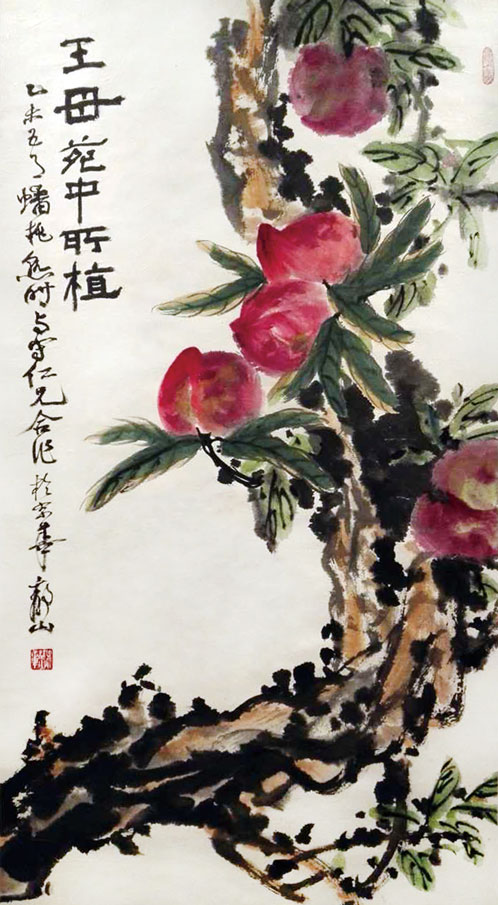 王母苑中所植
乙未五月蟠桃熟时与守仁兄合作于京华 山